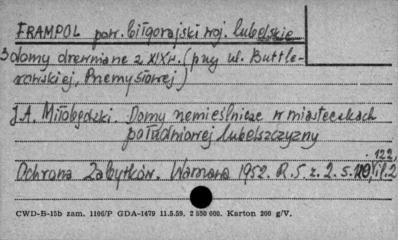 FRAMPOL pow. biłgorajski woj. lubelskie
3 domy drewniane z XIX w. (przy ul. Buttle-
rowskiej, Przemysłowej)
J.A. Miłobędzki. Domy rzemieślnicze w miasteczkach
południowej Lubelszczyzny
122,
Ochrona Zabytków. Warszawa 1952. R. 5. z. 2. s. 120, il. 2
CWD-B-15b zam. 1106/P GDA-1479 11.5.59. 2 550 000. Karton 200 g/V.